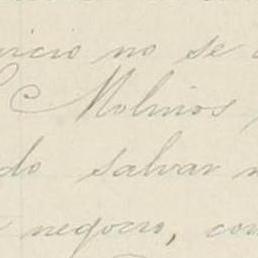 no se
Molinos
do salvar
negocio, con